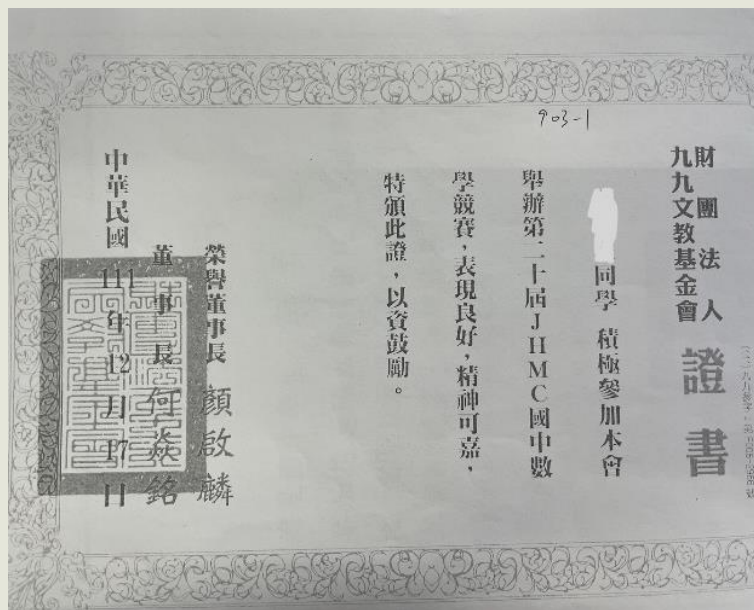 903-1
財團法人
九九文教基金會
證書
同學 積極參加本會
舉辦第二十屆JHMC國中數
學競賽，表現良好，精神可嘉，
特頒此證，以資鼓勵。
榮譽董事長 顏啟麟
董事長 何焱銘
中華民國 111年12月17日